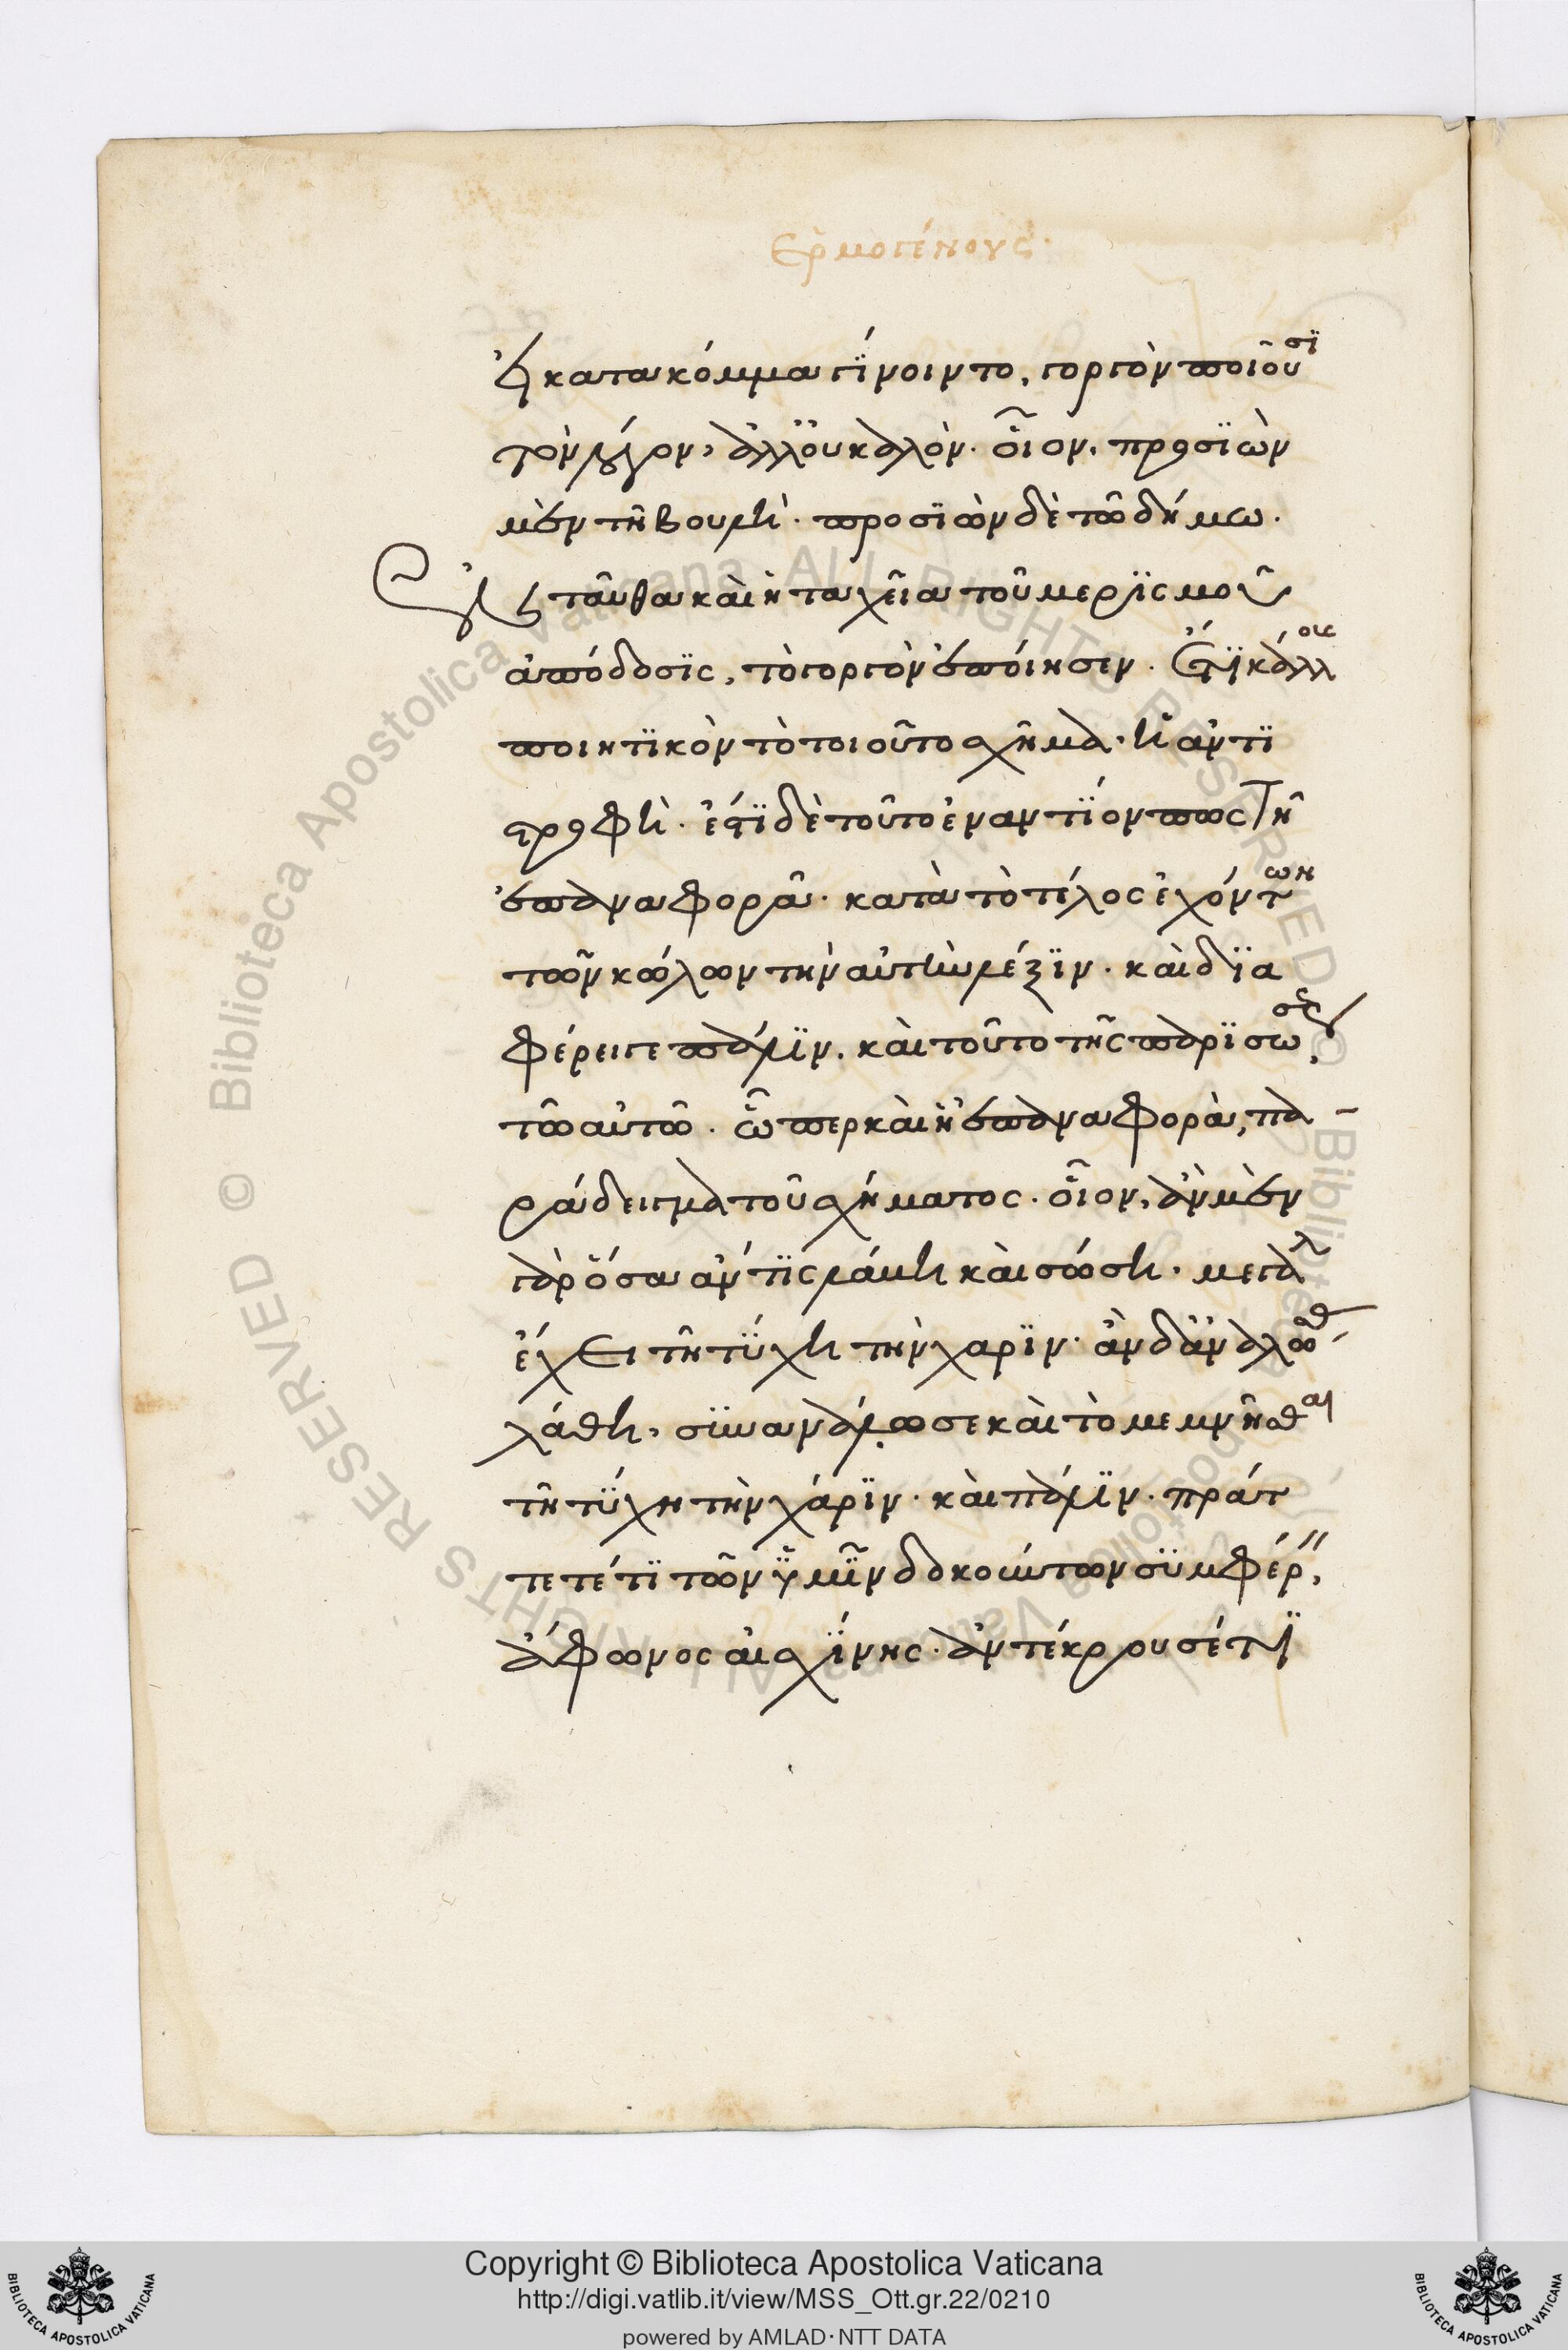 Ἑρμογένους.
εἰ κατὰ κόμμα γίνοιντο, γοργὸν ποιοῦσι
τὸν λόγον, ἀλλ' οὐ καλόν. οἷον, προσιὼν
μὲν τῇ βουλῇ. προσιὼν δὲ τῷ δήμω.
Ἐνταῦθα καὶ ἡ ταχεῖα τοῦ μερισμοῦ
ἀπόδοσις, τὸ γοργὸν ἐποίησεν. Ἔτι κάλλους
ποιητικὸν τὸ τοιοῦτο σχῆμα. ἡ ἀντι
στροφή. ἐστὶ δὲ τοῦτο ἐναντίον πως τῇ
ἐπαναφορᾷ. κατὰ τὸ τέλος ἐχόντων
τῶν κώλων τὴν αὐτὴν λέξιν. καὶ δια
φέρει γε πάλιν. καὶ τοῦτο τῆς παρισώσεως,
τῷ αὐτῷ. ᾧπερ καὶ ἡ ἐπαναφορὰ, πα
ράδειγμα τοῦ σχήματος. οἷον, ἂν μὲν
γὰρ ὅσα ἄν τις λάβῃ καὶ σώσῃ. μεγάλην
ἔχει τῇ τύχῃ τὴν χάριν. ἂν δ' ἀναλώσας
λάθῃ, συνανάλωσε καὶ τὸ μεμνῆσθαι
τῇ τύχη τὴν χάριν. καὶ πάλιν. πράτ
τεταί τι τῶν ὑμῖν δοκούντων συμφέρειν,
ἄφωνος αἰσχίνης. ἀντέκρουσέ τι
Copyright © Biblioteca Apostolica Vaticana
http://digi.vatlib.it/view/MSS_Ott.gr.22/0210
powered by AMLAD·NTT DATA